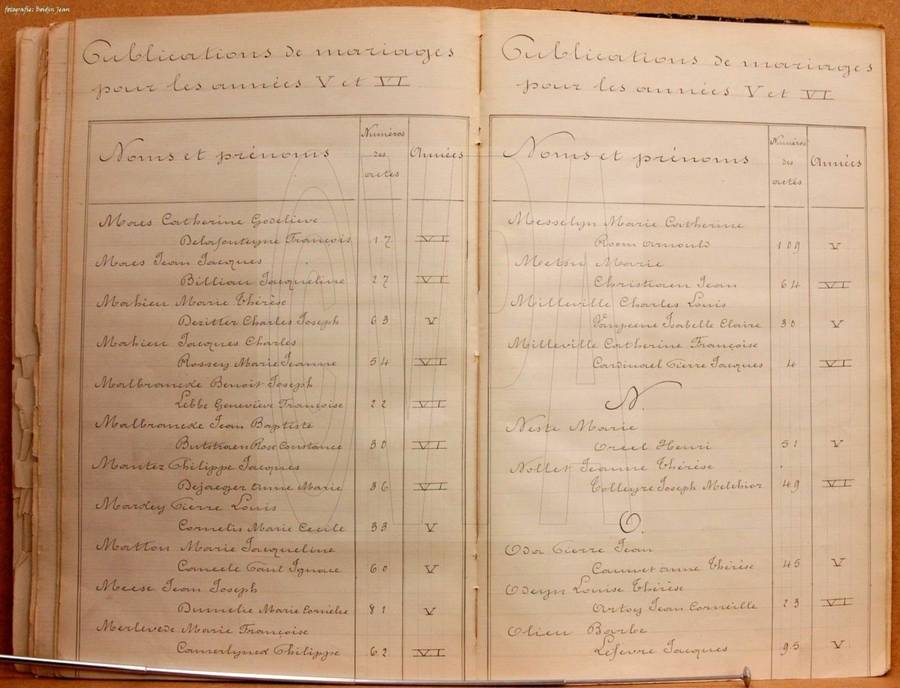 fotografie: Boidin Jean
Publications de mariages
pour les années V et VI
Noms et prénoms
Numéros des actes
Années
Maes Catherine Godelieve
Delafonteyne François 17 VI
Maes Jean Jacques
Billiau Jacqueline 27 VI
Mahieu Marie Thérèse
Dezitter Charles Joseph 63 V
Mahieu Jacques Charles
Rossey Marie Jeanne 54 VI
Malbrancke Benoit Joseph
Lebbe Geneviève Françoise 22 VI
Malbrancke Jean Baptiste
Butstraen Rose Constance 30 VI
Mantez Philippe Jacques
Dejaeger Anne Marie 36 VI
Mardey Pierre Louis
Cornelis Marie Cecile 33 V
Matton Marie Jacqueline
Paul Ignace 60 V
Meese Jean Joseph
Marie Cornélie 81 V
Merlevede Marie Françoise
Camerlynck Philippe 62 VI
Publications de mariages
pour les années V et VI
Noms et prénoms
Numéros des actes
Années
Messelyn Marie Catherine
Room Arnould 109 V
Metsu Marie
Christiaen Jean 64 VI
Milleville Charles Louis
Vanpeene Isabelle Claire 30 V
Milleville Catherine Françoise
Cardinael Pierre Jacques 4 VI
N.
Neste Marie
Creel Henri 51 V
Nollet Jeanne Thérèse
Tolleyre Joseph Melchior 49 VI
O.
Oda Pierre Jean
Cauwet Anne Thérèse 45 V
Odeyn Louise Thérèse
Artoy Jean Corneille 23 VI
Olieu Barbe
Lefevre Jacques 95 V